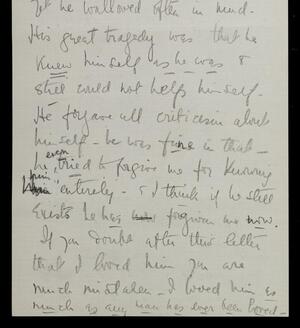 Yet he wallowed often in mud.
His great tragedy was that he
knew himself as he was &
still could not help himself.
He forgave all criticism about
himself - he was fine in that -
he even tried to forgive me for knowing
him entirely - & I think if he still
exists he has forgiven me now.
If you doubt after this letter
that I loved him you are
much mistaken - I loved him as
much as any man has ever been loved -